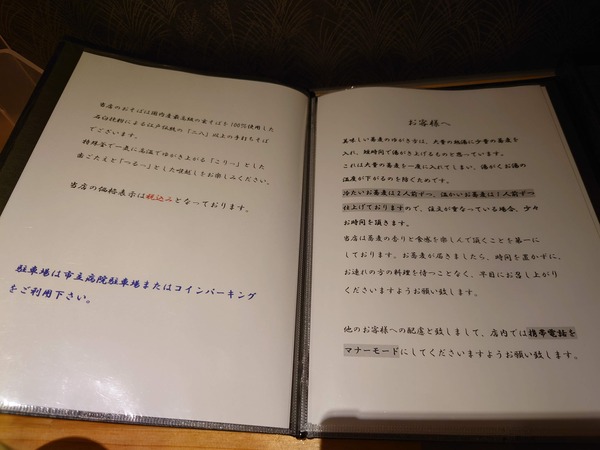 当店のおそばは国内産最高級の玄そばを100%使用した
石臼挽粉による江戸伝統の「二八」以上の手打ちそば
でございます。
特殊釜で一気に高温でゆがき上がる「こりー」とした
歯ごたえと「つるー」とした喉越しをお楽しみください。
当店の価格表示は税込みとなっております。
駐車場は市立病院駐車場またはコインパーキング
をご利用下さい。
お客様へ
美味しい蕎麦のゆがき方は、大量の熱湯に少量の蕎麦を
入れ、短時間で湯がき上げるものと思っています。
これは大量の蕎麦を一度に入れてしまい、湯がくお湯の
温度が下がるのを防ぐためです。
冷たいお蕎麦は2人前ずつ、温かいお蕎麦は1人前ずつ
仕上げておりますので、注文が重なっている場合、少々
お時間を頂きます。
当店は蕎麦の香りと食感を楽しんで頂くことを第一に
しております。お蕎麦が届きましたら、時間を置かずに、
お連れの方の料理を待つことなく、早目にお召し上がり
くださいますようお願い致します。
他のお客様への配慮と致しまして、店内では携帯電話を
マナーモードにしてくださいますようお願い致します。